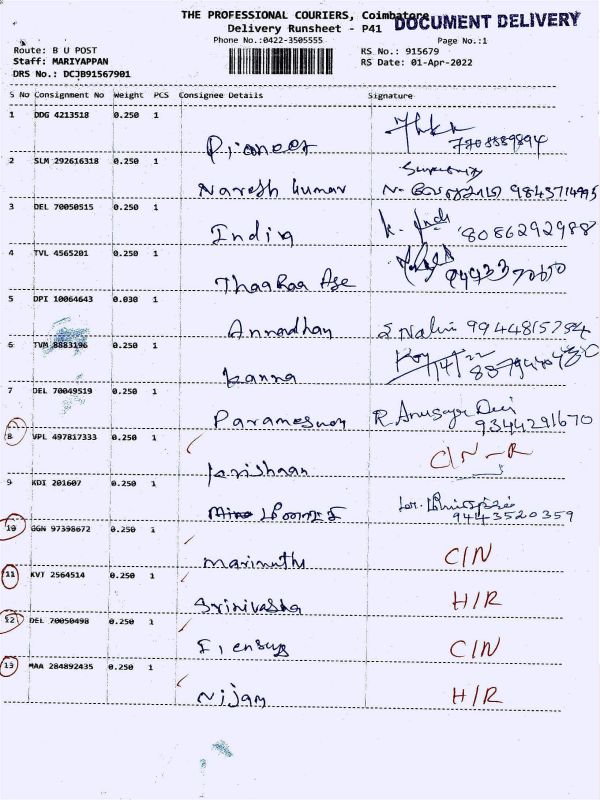 THE PROFESSIONAL COURIERS, Coimbatore
DOCUMENT DELIVERY
Delivery Runsheet - P41
Phone No.:0422-3505555
Page No.:1
Route: B U POST
RS No.: 915679
Staff: MARIYAPPAN
RS Date: 01-Apr-2022
DRS No.: DCJB91567901
S No Consignment No Weight PCS Consignee Details Signature
1 DDG 4213518 0.250 1
Pioneer
2 SLM 292616318 0.250 1
Naresh kumar
3 DEL 70050515 0.250 1
India K. 8086292988
4 TVL 4565201 0.250 1
5 DPI 10064643 0.030 1
Annadhan S Nalini
6 TVM 8883196 0.250 1
kanna
7 DEL 70049519 0.250 1
R. Anusaya Devi
9344291670
8 VPL 497817333 0.250 1 C/N-R
krishaan
9 KDI 201607 0.250 1
9443520359
10 GGN 97398672 0.250 1
marimuthu C/N
11 KVT 2564514 0.250 1
H/R
12 DEL 70050498 0.250 1
C/N
13 MAA 284892435 0.250 1
Nijam H/R